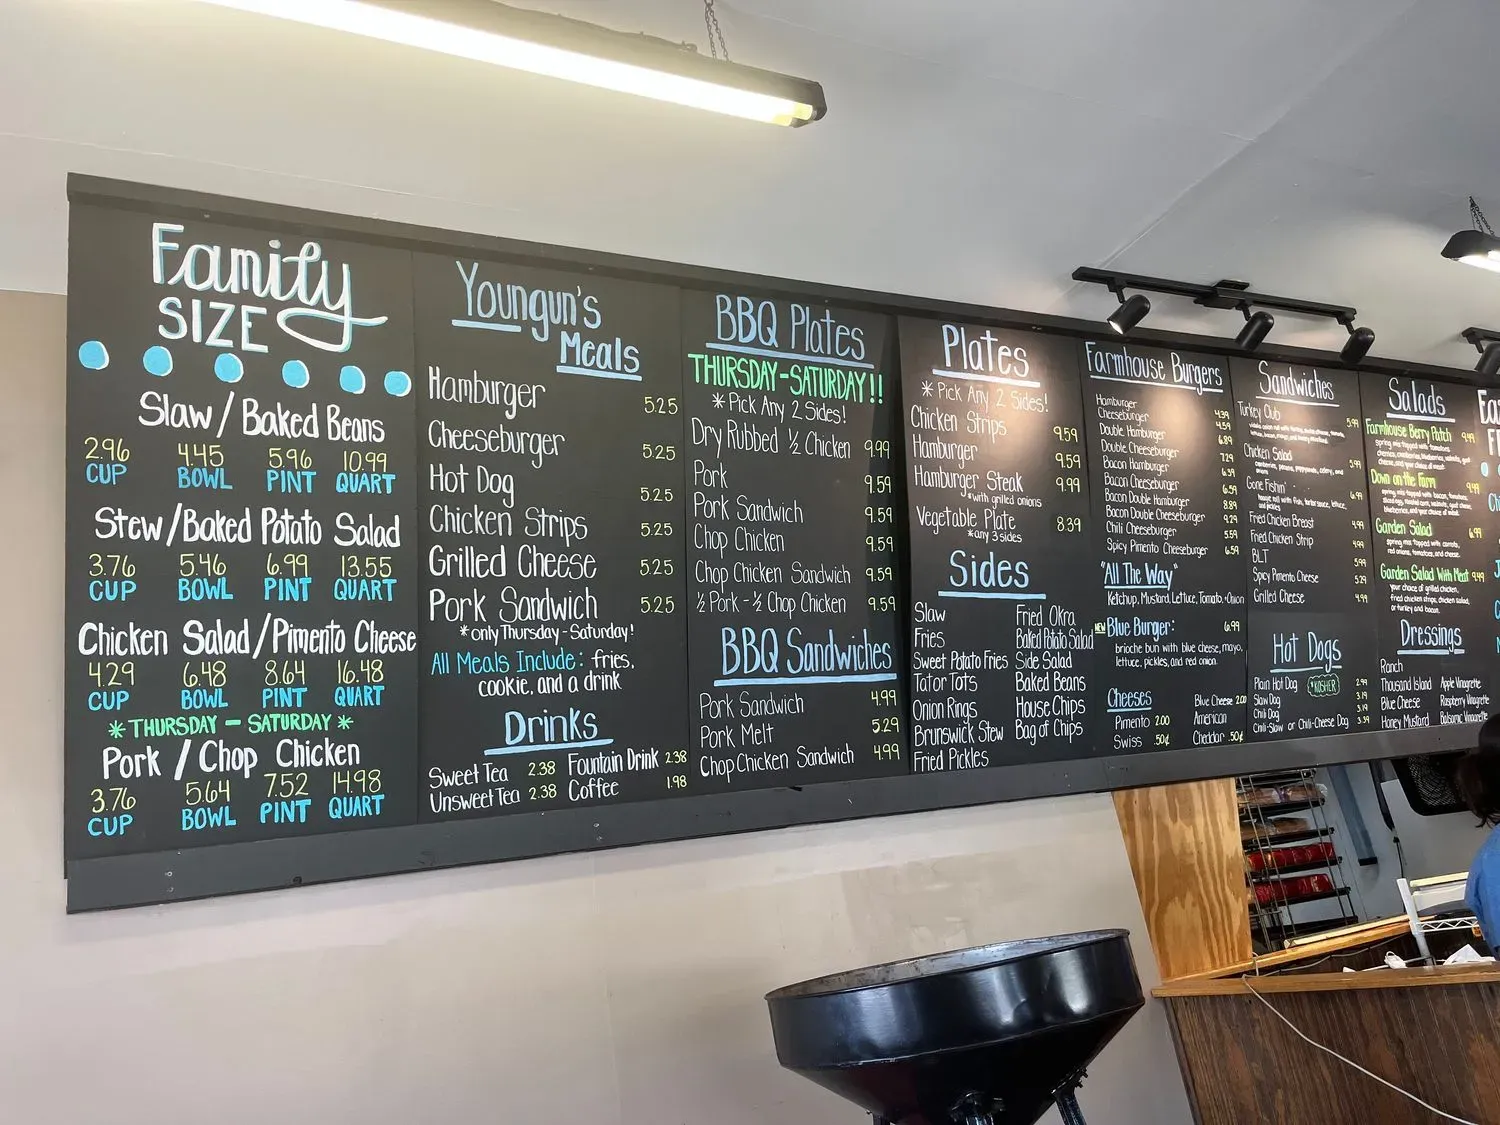 Family
SIZE
Slaw / Baked Beans
2.96 4.45 5.96 10.99
CUP BOWL PINT QUART
Stew / Baked Potato Salad
3.76 5.46 6.99 13.55
CUP BOWL PINT QUART
Chicken Salad / Pimento Cheese
4.29 6.48 8.64 16.48
CUP BOWL PINT QUART
* THURSDAY - SATURDAY *
Pork / Chop Chicken
3.76 5.64 7.52 14.98
CUP BOWL PINT QUART
Youngun's
Meals
Hamburger 5.25
Cheeseburger 5.25
Hot Dog 5.25
Chicken Strips 5.25
Grilled Cheese 5.25
Pork Sandwich 5.25
*only Thursday - Saturday!
All Meals Include: fries,
cookie, and a drink
Drinks
Sweet Tea 2.38 Fountain Drink 2.38
Unsweet Tea 2.38 Coffee 1.98
BBQ Plates
THURSDAY - SATURDAY!!
* Pick Any 2 Sides!
Dry Rubbed ½ Chicken 9.99
Pork 9.59
Pork Sandwich 9.59
Chop Chicken 9.59
Chop Chicken Sandwich 9.59
½ Pork - ½ Chop Chicken 9.59
BBQ Sandwiches
Pork Sandwich 4.99
Pork Melt 5.29
Chop Chicken Sandwich 4.99
Plates
* Pick Any 2 Sides!
Chicken Strips 9.59
Hamburger 9.59
Hamburger Steak 9.99
*with grilled onions
Vegetable Plate 8.39
*any 3 sides
Sides
Slaw Fried Okra
Fries Baked Potato Salad
Sweet Potato Fries Side Salad
Tator Tots Baked Beans
Onion Rings House Chips
Brunswick Stew Bag of Chips
Fried Pickles
Farmhouse Burgers
Hamburger 4.39
Cheeseburger 4.59
Double Hamburger 6.89
Double Cheeseburger 7.29
Bacon Hamburger 6.39
Bacon Cheeseburger 6.59
Bacon Double Hamburger 8.89
Bacon Double Cheeseburger 9.29
Chili Cheeseburger 5.59
Spicy Pimento Cheeseburger 6.59
"All The Way"
Ketchup, Mustard, Lettuce, Tomato, Onion
NEW Blue Burger: 6.99
brioche bun with blue cheese, mayo,
lettuce, pickles, and red onion.
Cheeses
Pimento 2.00 Blue Cheese 2.00
Swiss .50¢ American
Cheddar .50¢
Sandwiches
Turkey Club 5.99
Chicken Salad 5.99
Gone Fishin' 6.99
Fried Chicken Breast 4.99
Fried Chicken Strip 4.99
BLT 5.99
Spicy Pimento Cheese 5.29
Grilled Cheese 4.99
Hot Dogs
Plain Hot Dog *KOSHER 2.99
Slaw Dog 3.19
Chili Dog 3.19
Chili-Slaw or Chili-Cheese Dog 3.39
Salads
Farmhouse Berry Patch 9.49
spring mix topped with tomatoes,
Down on the Farm 9.49
spring mix topped with bacon, tomatoes,
Garden Salad 6.99
spring mix topped with carrots,
red onions, tomatoes, and cheese.
Garden Salad With Meat 9.49
your choice of grilled chicken,
fried chicken strips, chicken salad,
or turkey and bacon.
Dressings
Ranch
Thousand Island Apple Vinagrette
Blue Cheese Raspberry Vinagrette
Honey Mustard Balsamic Vinagrette